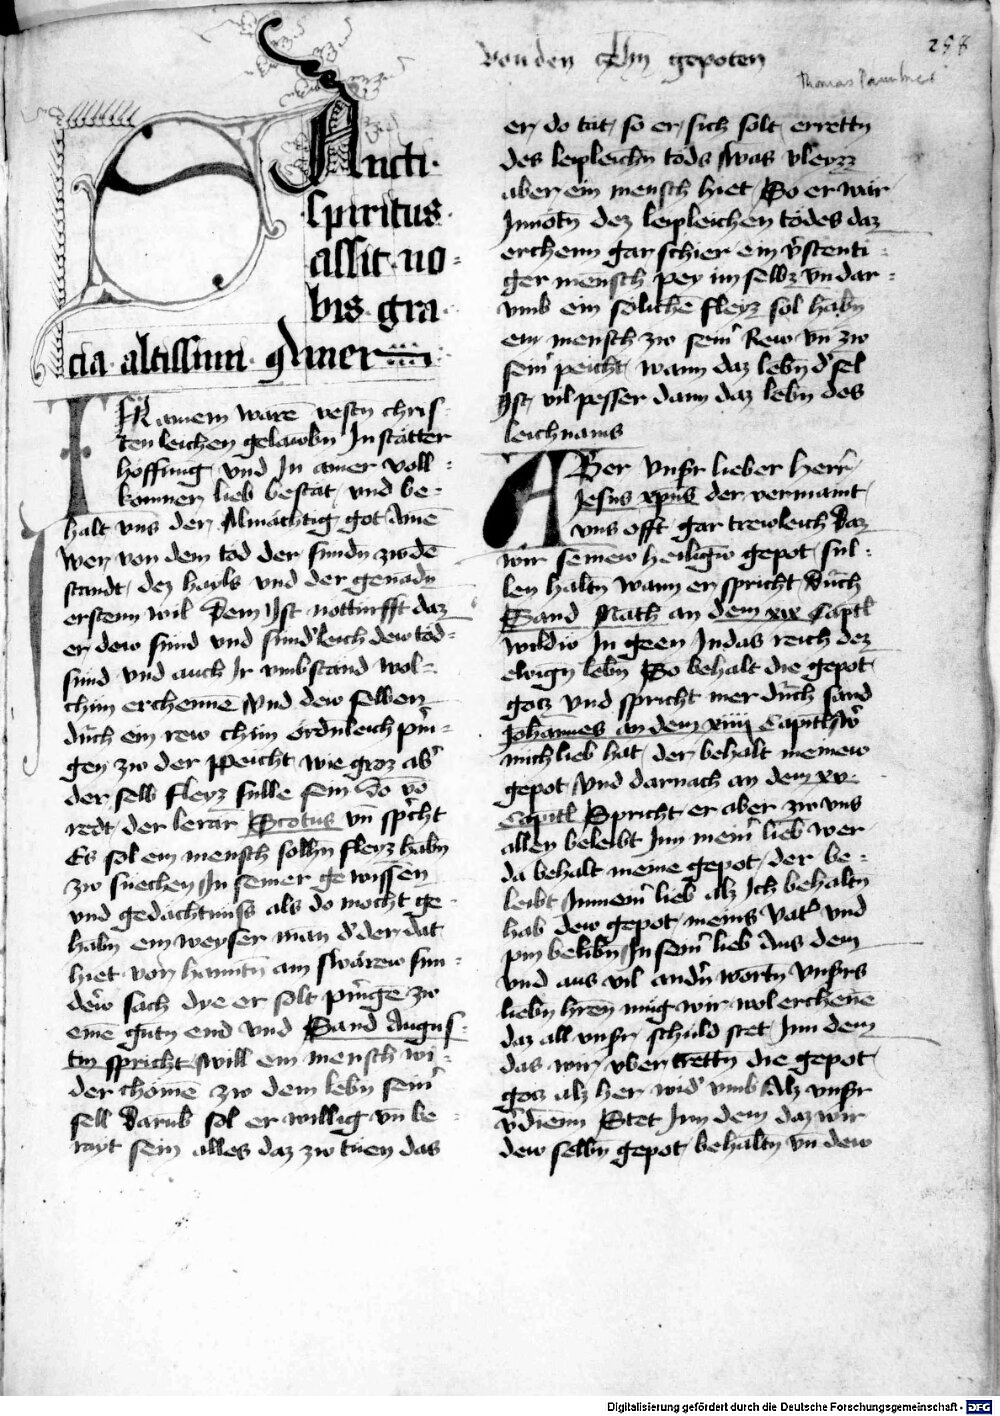 von den zehn gepoten
258
SAncti
spiritus
assit no-
bis gra
cia altissimi. Amen
IN ainem warē vestn chris-
tenleichen gelawbn In stätter
hoffnūg vnd In ainer voll-
komner lieb bestät, vnd be-
halt vns der Almächtig got Amē
Wer von dem tod der sundn zw dē
standt, dez hayls vnd der genadn
ersten wil Dem Ist notturfft daz
er dew sünd vnd sundleich dew töd-
sünd vnd auch Ir vmbstand wol
chün erchennē vnd dew selben
durch ein rew chün ordnleich prin-
gen zw der peicht, wie groz ab̄
der selb fleyz sulle sein Do vō
redt, der lerär Scotus vn̄ sp̄cht
Es sol ein mensch solhn fleyz habn
zw suechen In seiner gewissen
vnd gedächtnüss als do möcht ge-
habn ein weyser man d̄ der dat
hiet von hanntn ain swärew sun-
dew sach dye er solt pringē zw
einē gutn end vnd Sand Augus-
tin spricht, will ein mensch wi-
der chömē zw dem lebn sein̄
sell Darūb sol er willig vn̄ be-
rayt sein alles daz zw tuen das
er, do tät, so er, sich solt errettn
des leipleichn töds Was vleyzz
aber ein mensch hiet, So er wär
Innötn dez leipleichen tödes daz
erchenn gar schier ein v̄stenti-
ger mensch pey im selbz vn̄ dar-
vmb ein söliche fleyz sol habn
ein mensch zw sein̄ Rew vn̄ zw
sein̄ peicht, wann daz lebn̄ d̄ sel
Ist, vil pesser dann daz lebn des
leichnams
ABer vnsr lieber herr
Jesus xpūs der vermaint,
vns offt gar trewleich Daz
wir seinew heiligew gepot, sül-
len haltn wann er spricht, Durch
Sand Math an dem xix Captl
Wildiw In geen Indas reich dez
ewign lebn̄ So behalt die gepot,
gotz vnd spricht mer durch sand
Johannes an dem xiiij Capitl W̄
mich lieb hat, der behalt meinew
gepot, vnd darnach an dem xv.
Capitl Spricht er aber zw vns
allen beleibt Inn mein̄ lieb wer
da behalt meine gepot, der be-
leibt Inmein̄ lieb alz Ich behaltn̄
hab dew gepot, meins vatl vnd
pin belibn In sein̄ lieb Aus dem
vnd aus vil andn̄ wortn vnsrs
liebn hren müg wir wol erchenē
daz all vnsr schuld stet, Inn dem
das wir vbertrettn die gepot,
gotz alz her wid̄ vmb Alz vnsr
v̄dienn Stet Inn dem daz wir
dew selbn gepot, behaltn vn̄ dew
Digitalisierung gefördert durch die Deutsche Forschungsgemeinschaft - DFG